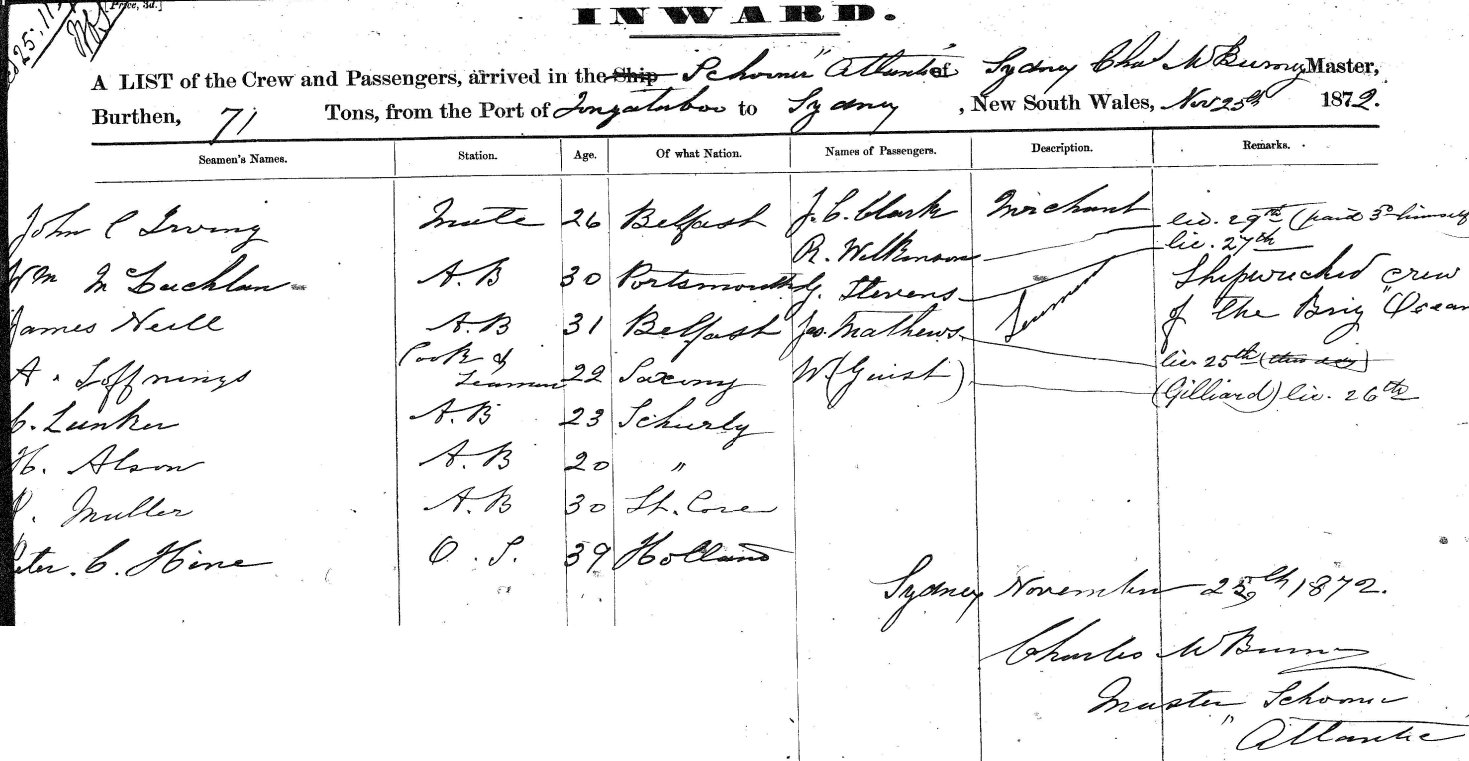 [Price, 3d.]
25.11
INWARD.
A LIST of the Crew and Passengers, arrived in the Ship Schooner "Atlantic" of Sydney Chas McBurney Master,
Burthen, 71 Tons, from the Port of Tongataboo to Sydney, New South Wales, Nov 25th 1872.
Seamen's Names. Station. Age. Of what Nation. Names of Passengers. Description. Remarks.
John C Irving Mate 26 Belfast J. C. Clark Merchant lic. 29th (paid 3d himself
R. Wilkinson lic. 27th
Wm McLachlan A.B 30 Portsmouth G. Stevens Seamen Shipwrecked crew
James Neill A.B 31 Belfast Jas. Mathews of the Brig "Ocean
A. Loffnings Cook & Seaman 22 Saxony W (Guist) lic 25th (this day)
(Gilliard) lic. 26th
C. Lunker A.B 23 Schurly
H. Alson A.B 20 "
Muller A.B 30 St. Core
Peter. C. Hine O.S. 39 Holland
Sydney November 25th 1872.
Charles McBurney
Master Schooner
"Atlantic